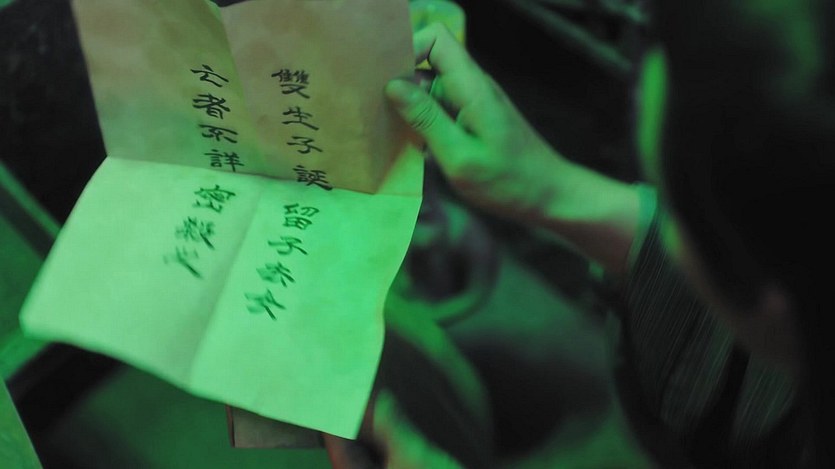 雙生子誕留子去女
亡者不詳密殺之